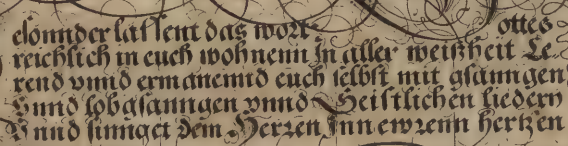 esonnder lassent das wort ottes
reichlich in euch wohnenn Jn aller weißheit Le-
rend vnnd ermanennd euch selbst mit gsanngen
Vnnd lobgsanngen vnnd Geistlichen liedern
Vnnd sinnget dem Herzen Jnn ewrenn hertzen